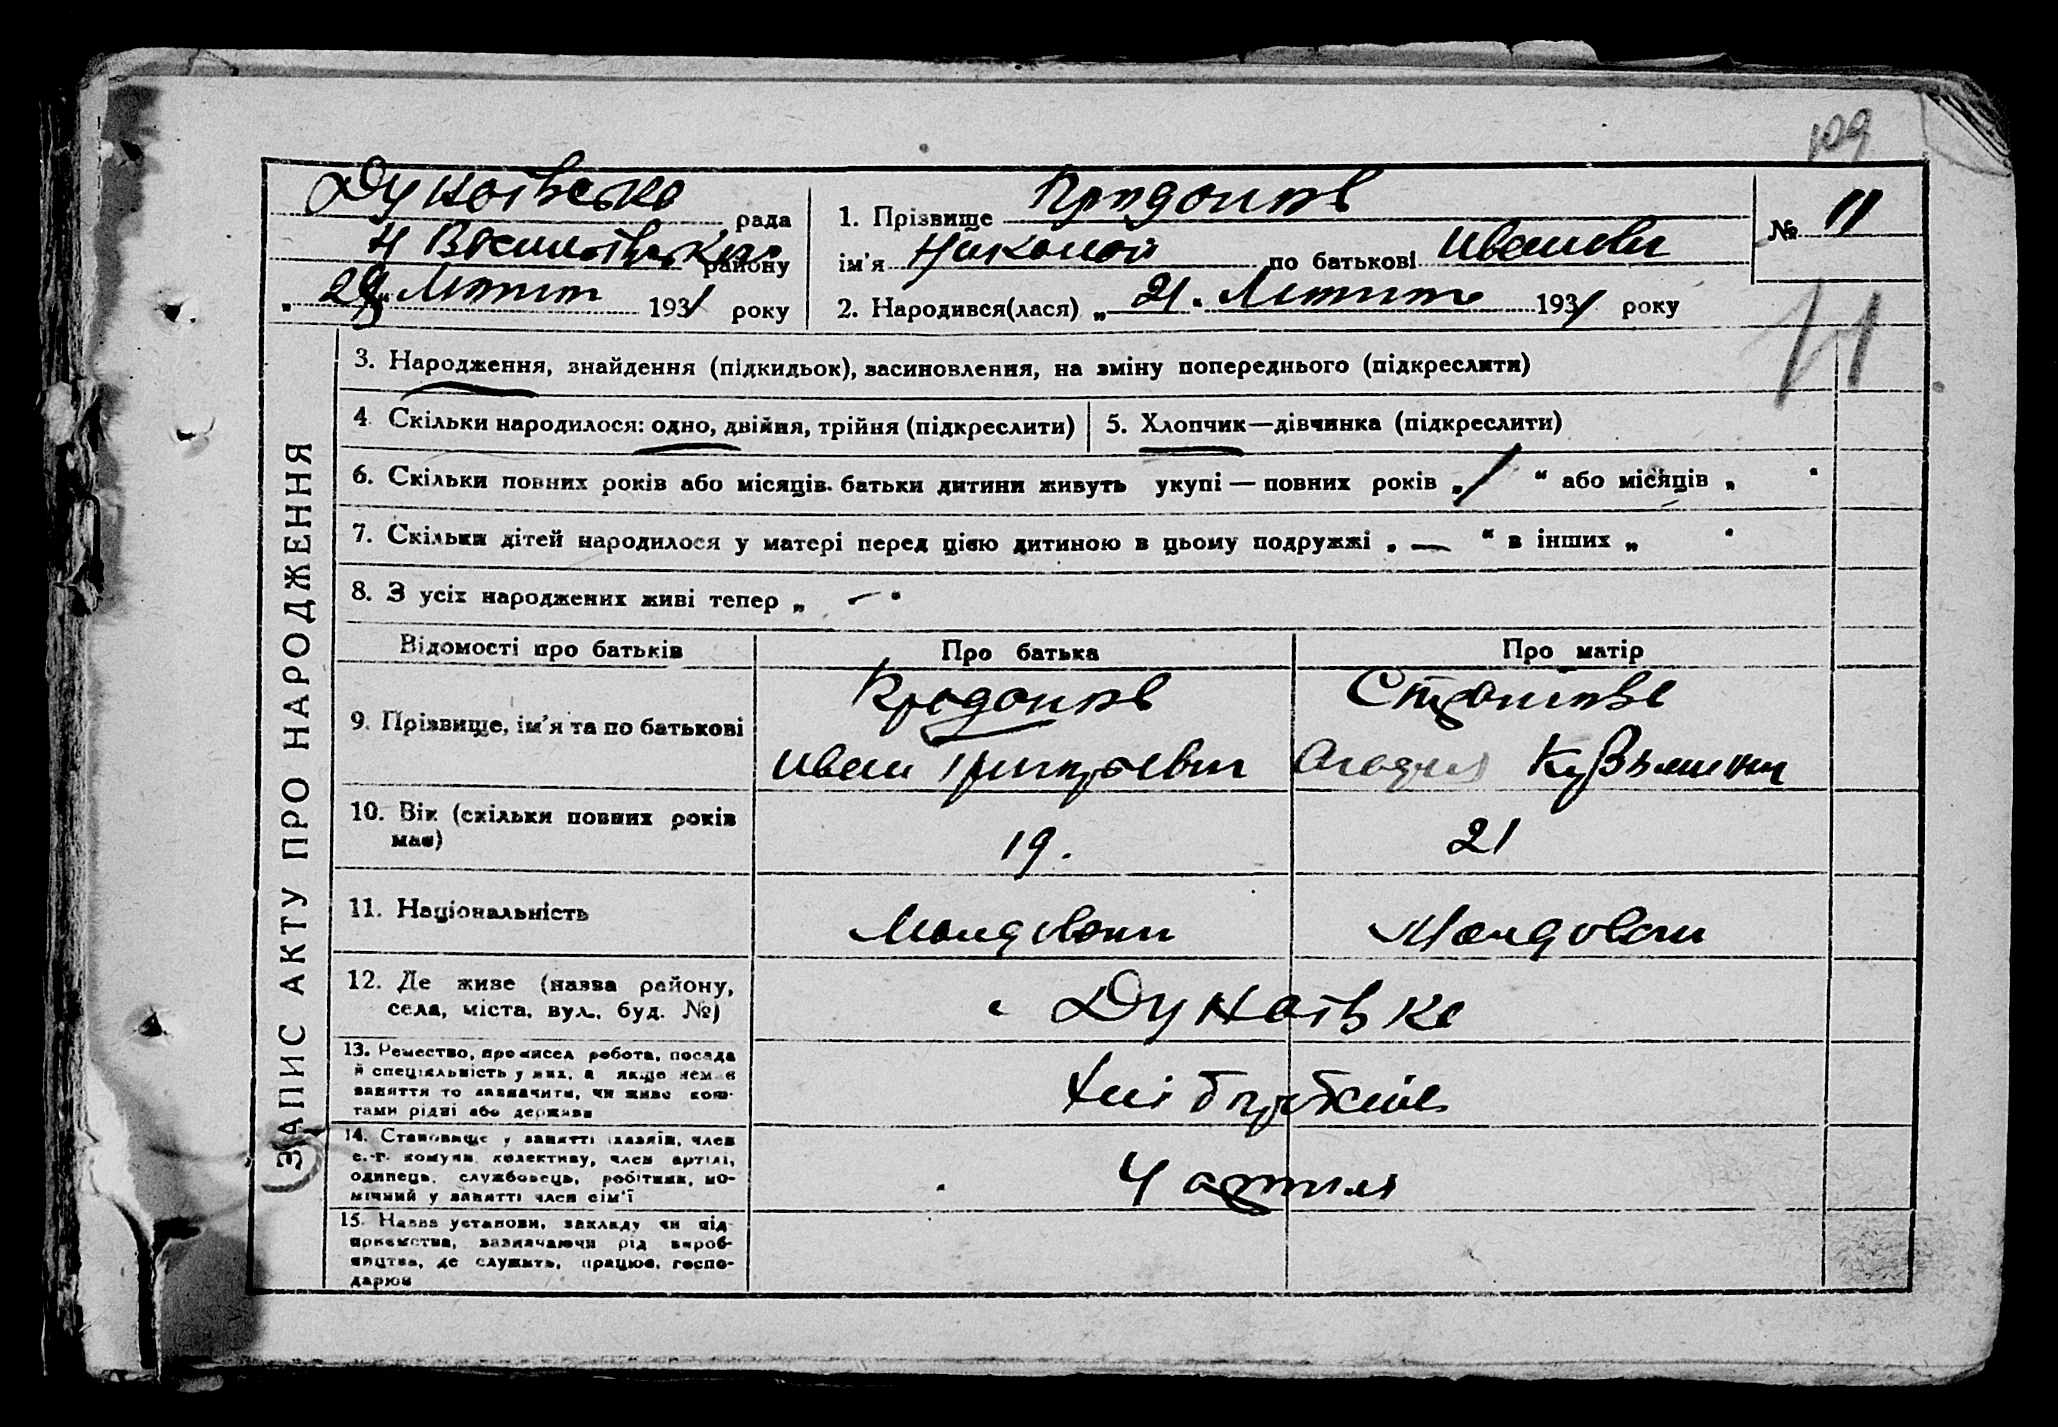 109
Дунаівська рада
Н Василівськаго району
„ 29 " Лютого 1931 року
1. Прізвище
ім'я Николай по батькові Иванович
2. Народився(лася) „ 21 " Лютого 1931 року
№ 11
11
ЗАПИС АКТУ ПРО НАРОДЖЕННЯ
3. Народження, знайдення (підкидьок), засиновлення, на зміну попереднього (підкреслити)
4. Скільки народилося: одно, двійня, трійня (підкреслити)
5. Хлопчик—дівчинка (підкреслити)
6. Скільки повних років або місяців батьки дитини живуть укупі — повних років „ 1 " або місяців „ "
7. Скільки дітей народилося у матері перед цією дитиною в цьому подружжі „ — " в інших „ "
8. З усіх народжених живі тепер „ — "
Відомості про батьків
Про батька
Про матір
9. Прізвище, ім'я та по батькові
Иван Григорьевич
Кузьминич
10. Вік (скільки повних років має)
19.
21
11. Національність
Молдован
Молдован
12. Де живе (назва району, села, міста, вул., буд. №)
с Дунаівка
13. Ремество, промисел робота, посада й спеціяльність у них, а якщо немає заняття то зазначити, чи живе коштами рідні або держави
Хлібороби
14. Становище у занятті хазяїн, член с.-г. комуни, колективу, член артілі, одинець, службовець, робітник, помічний у занятті член сім'ї
Ч артилі
15. Назва установи, закладу чи підприємства, зазначаючи рід виробництва, де служить, працює, господарює